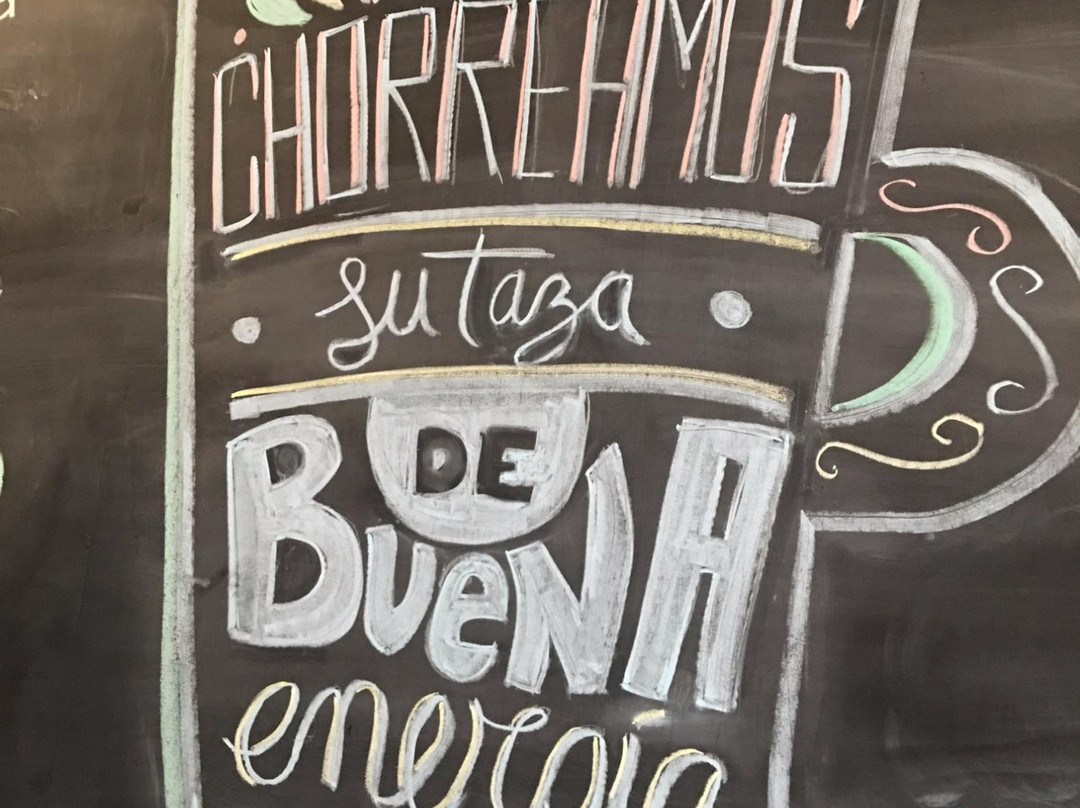 CHORREAMOS
su taza
DE
BUeNA
energía